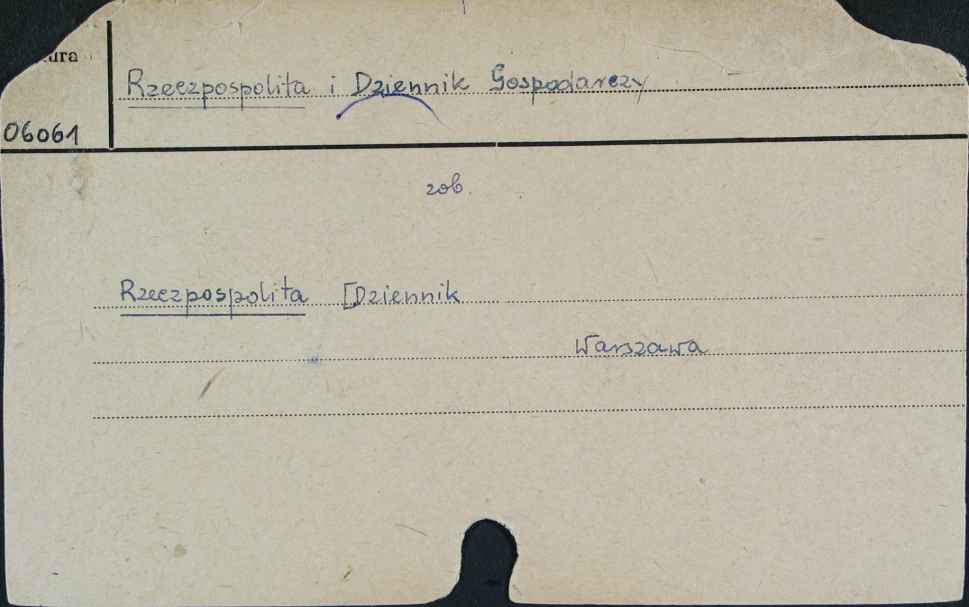 ura
Rzeczpospolita i Dziennik Gospodarczy
06061
zob.
Rzeczpospolita [Dziennik
Warszawa